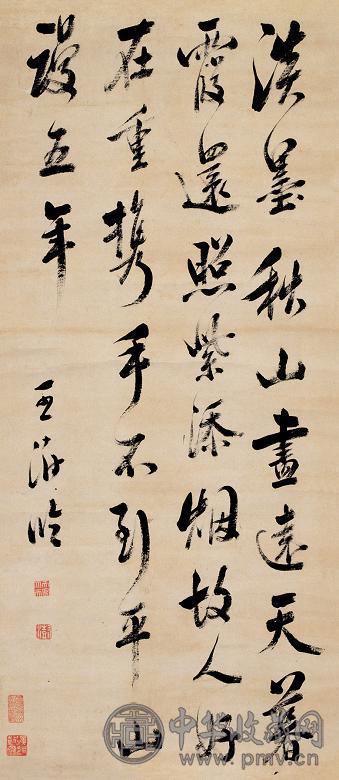 淡墨秋山畫遠天暮
霞還照紫添烟故人好
在重携手不到平山
謾五年
王 臨
中华收藏网
www.pmv.cn